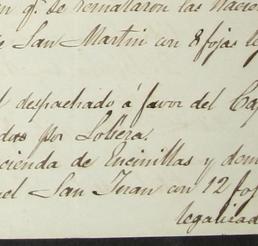 n q.e se remataron las hacien
e San Martin con 8 fojas le
l despachado á favor del Ca
das por Lobera.
cienda de Encinillas y dem
uel San Juan con 12 foj
legalizad